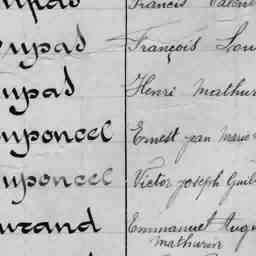 upas Francis
upas François Lou
upas Henri Mathur
uponcel Ernest Jean Marie
uponcel Victor Joseph Guil
urand Emmanuel Augu
Mathurin